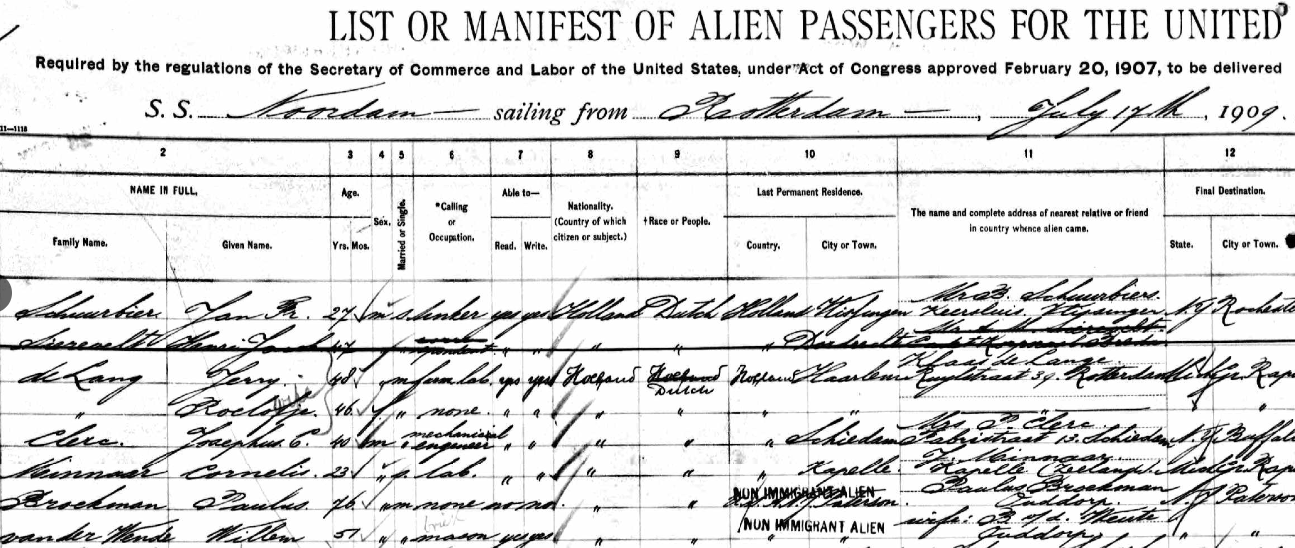 LIST OR MANIFEST OF ALIEN PASSENGERS FOR THE UNITED
Required by the regulations of the Secretary of Commerce and Labor of the United States, under Act of Congress approved February 20, 1907, to be delivered
S. S. Noordam sailing from Rotterdam, July 17th, 1909.
11—1118
2 3 4 5 6 7 8 9 10 11 12
NAME IN FULL. Age. Sex. Married or Single. *Calling or Occupation. Able to— Nationality. (Country of which citizen or subject.) †Race or People. Last Permanent Residence. The name and complete address of nearest relative or friend in country whence alien came. Final Destination.
Family Name. Given Name. Yrs. Mos. Read. Write. Country. City or Town. State. City or Town.
Mr. B. Scheurbiers.
Jan 27 m s yes yes Holland Dutch Holland
47 " " Dordrecht
Klaas de Lange
de Lang Jerry. 48 m farm lab. yes yes Holland Holland Dutch Holland Haarlem 39. Rotterdam Mich Gr. Rap
" Roelofje. wife 46 f. " none. " " " " " " "
Mrs. P. Clerc.
Clerc. Josephus C. 40 m " mechanical engineer " " " " " Schiedam 13. Schiedam N.Y. Buffalo
J. Minnaar.
Minnaar Cornelis. 23 " s. lab. " " " " " Kapelle. Kapelle (Zeeland). Mich Gr. Rap
NON IMMIGRANT ALIEN Paulus Broekman
Broekman Paulus. 76 " m none no no. " " N.J. Paterson. N.J. Paterson
NON IMMIGRANT ALIEN wife:
van der Wende Willem 51 " " mason yes yes " " " "